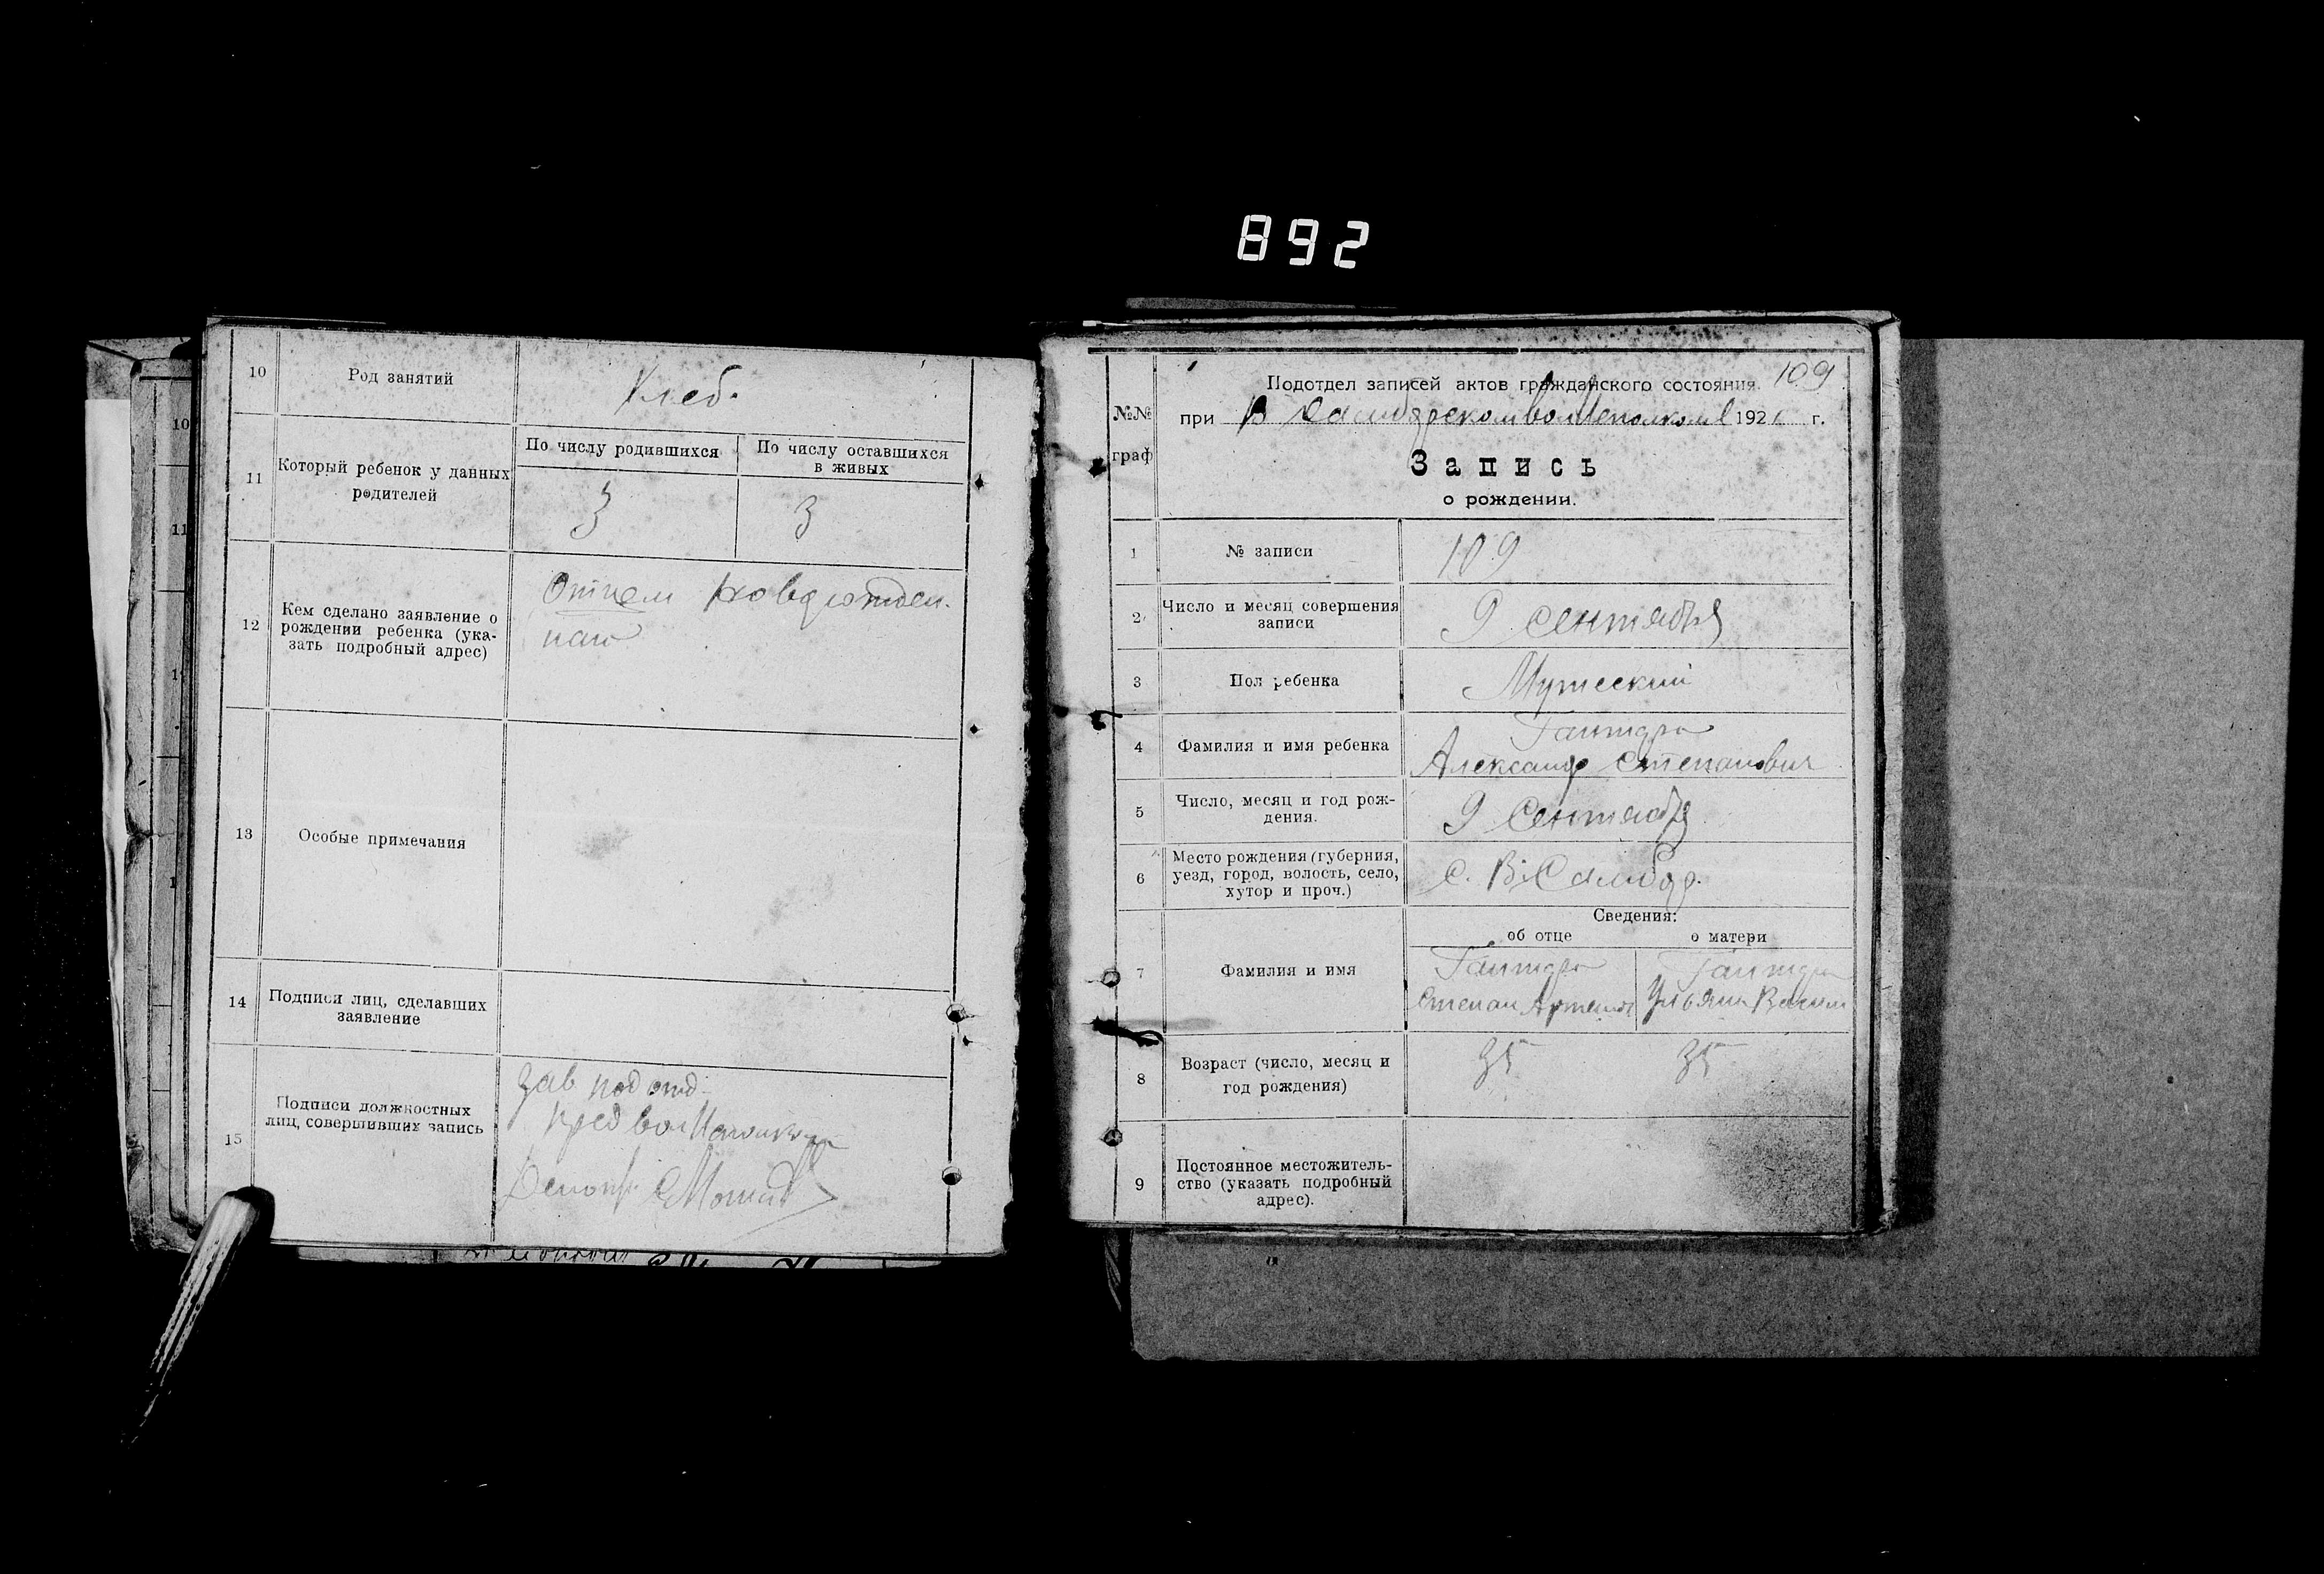 892
10
Род занятий
Хлеб.
11
Который ребенок у данных
родителей
По числу родившихся
По числу оставшихся
в живых
3
3
12
Кем сделано заявление о
рождении ребенка (ука-
зать подробный адрес)
Отцем
13
Особые примечания
14
Подписи лиц, сделавших
заявление
15
Подписи должностных
лиц, совершивших запись
Зав подотд
Пред
109
№№
граф
Подотдел записей актов гражданского состояния
при В 192 г.
Запись
о рождении.
1
№ записи
109
2
Число и месяц совершения
записи
9 сентября
3
Пол ребенка
Мужеский
4
Фамилия и имя ребенка
Александр Степанович
5
Число, месяц и год рож-
дения.
9 Сентября
6
Место рождения (губерния,
уезд, город, волость, село,
хутор и проч.)
С.
Сведения:
об отце
о матери
7
Фамилия и имя
Степан
8
Возраст (число, месяц и
год рождения)
35
35
9
Постоянное местожитель-
ство (указать подробный
адрес).